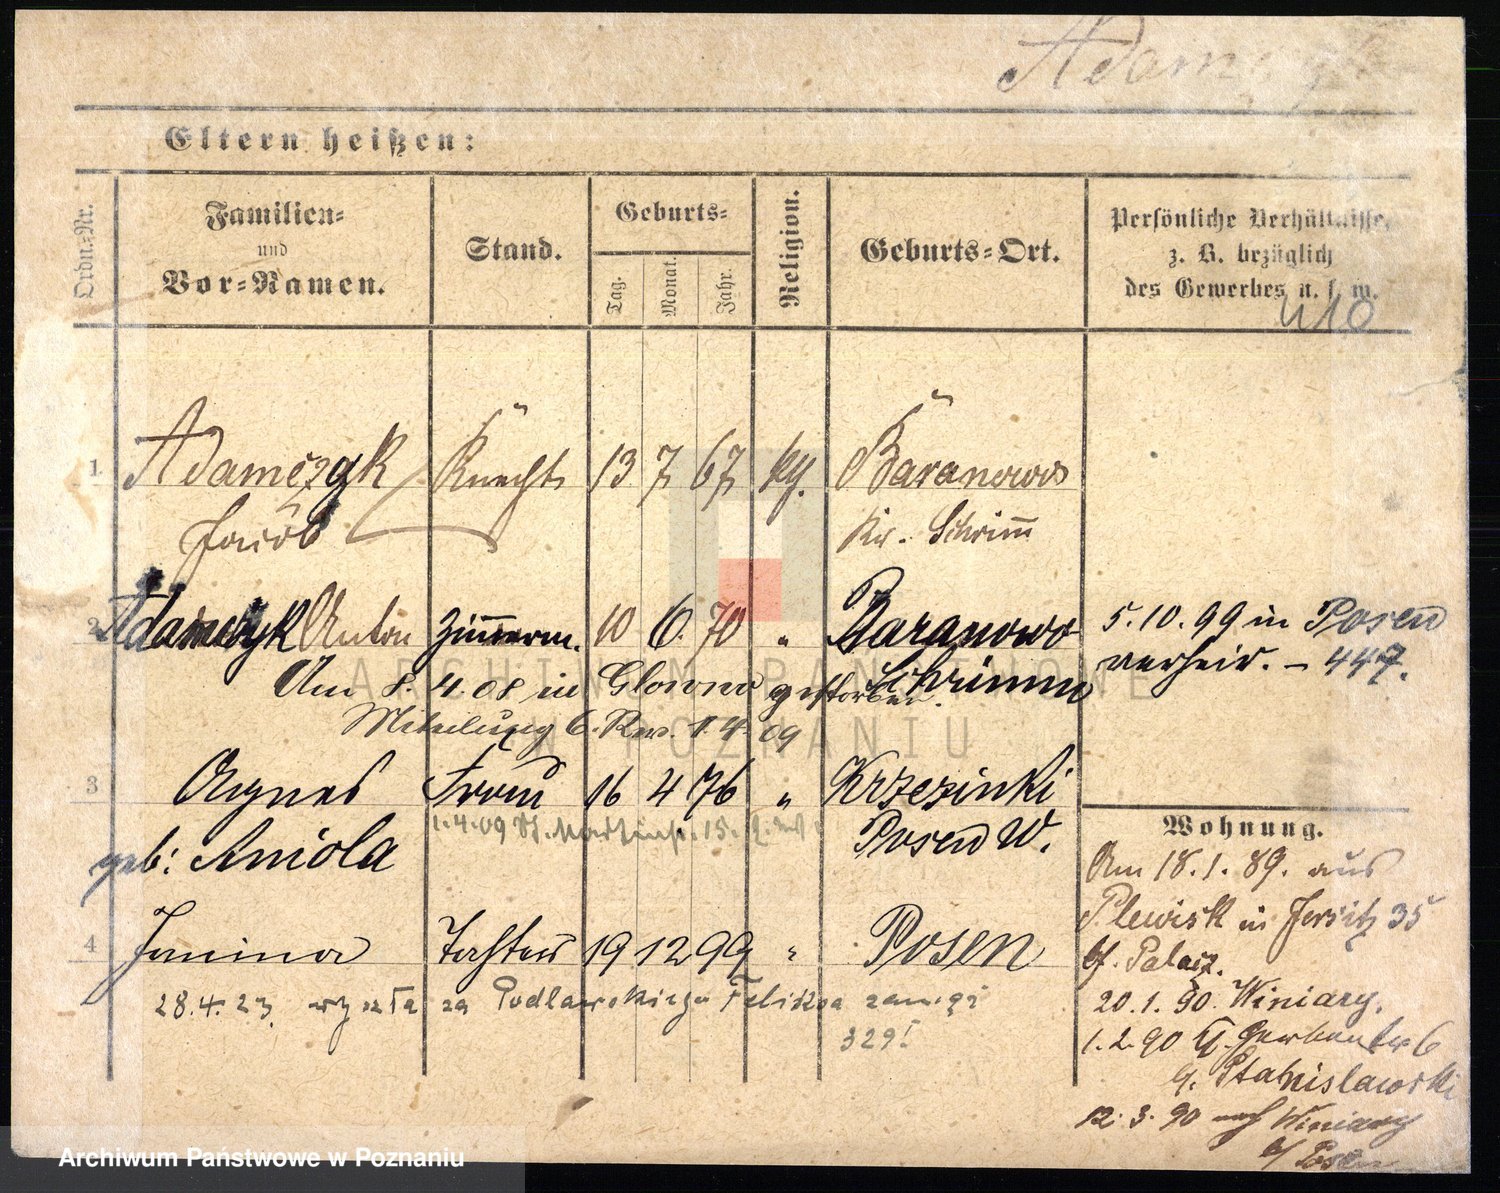 Adamczyk
Eltern heißen:
Ordn.=Nr.
Familien=
und
Vor=Namen.
Stand.
Geburts=
Tag.
Monat.
Jahr.
Religion.
Geburts=Ort.
Persönliche Verhältnisse,
z. B. bezüglich
des Gewerbes u. s. w.
1 Adamczyk Knecht 13 7 67 kg. Baranowo
Jacob Kr. Schrimm
2 Adamczyk Anton Zimmerm. 10 6. 70 " Baranowo
Schrimm
5.10.99 in Posen
verheir. - 447.
Am 8.4.08 in Glowno gestorben.
Mitteilung 6. Rev. 1.4.09
3 Agnes Frau 16 4 76 " Krzesinki
1.4.09
geb: Aniola Posen W.
4 Janina Tochter 19 12 99 " Posen
28.4.23 wyszła za Podlawskiego Feliksa zamąż
329!
Wohnung.
Am 18.1.89. aus
Plewisk in Jersitz 35
bf. Palacz.
20.1.90. Winiary.
1.2.90 Gerberstr 6
b. Stanislawski
12.3.90 nach Winiary
b/ Posen
ARCHIWUM PAŃSTWOWE
W POZNANIU
Archiwum Państwowe w Poznaniu